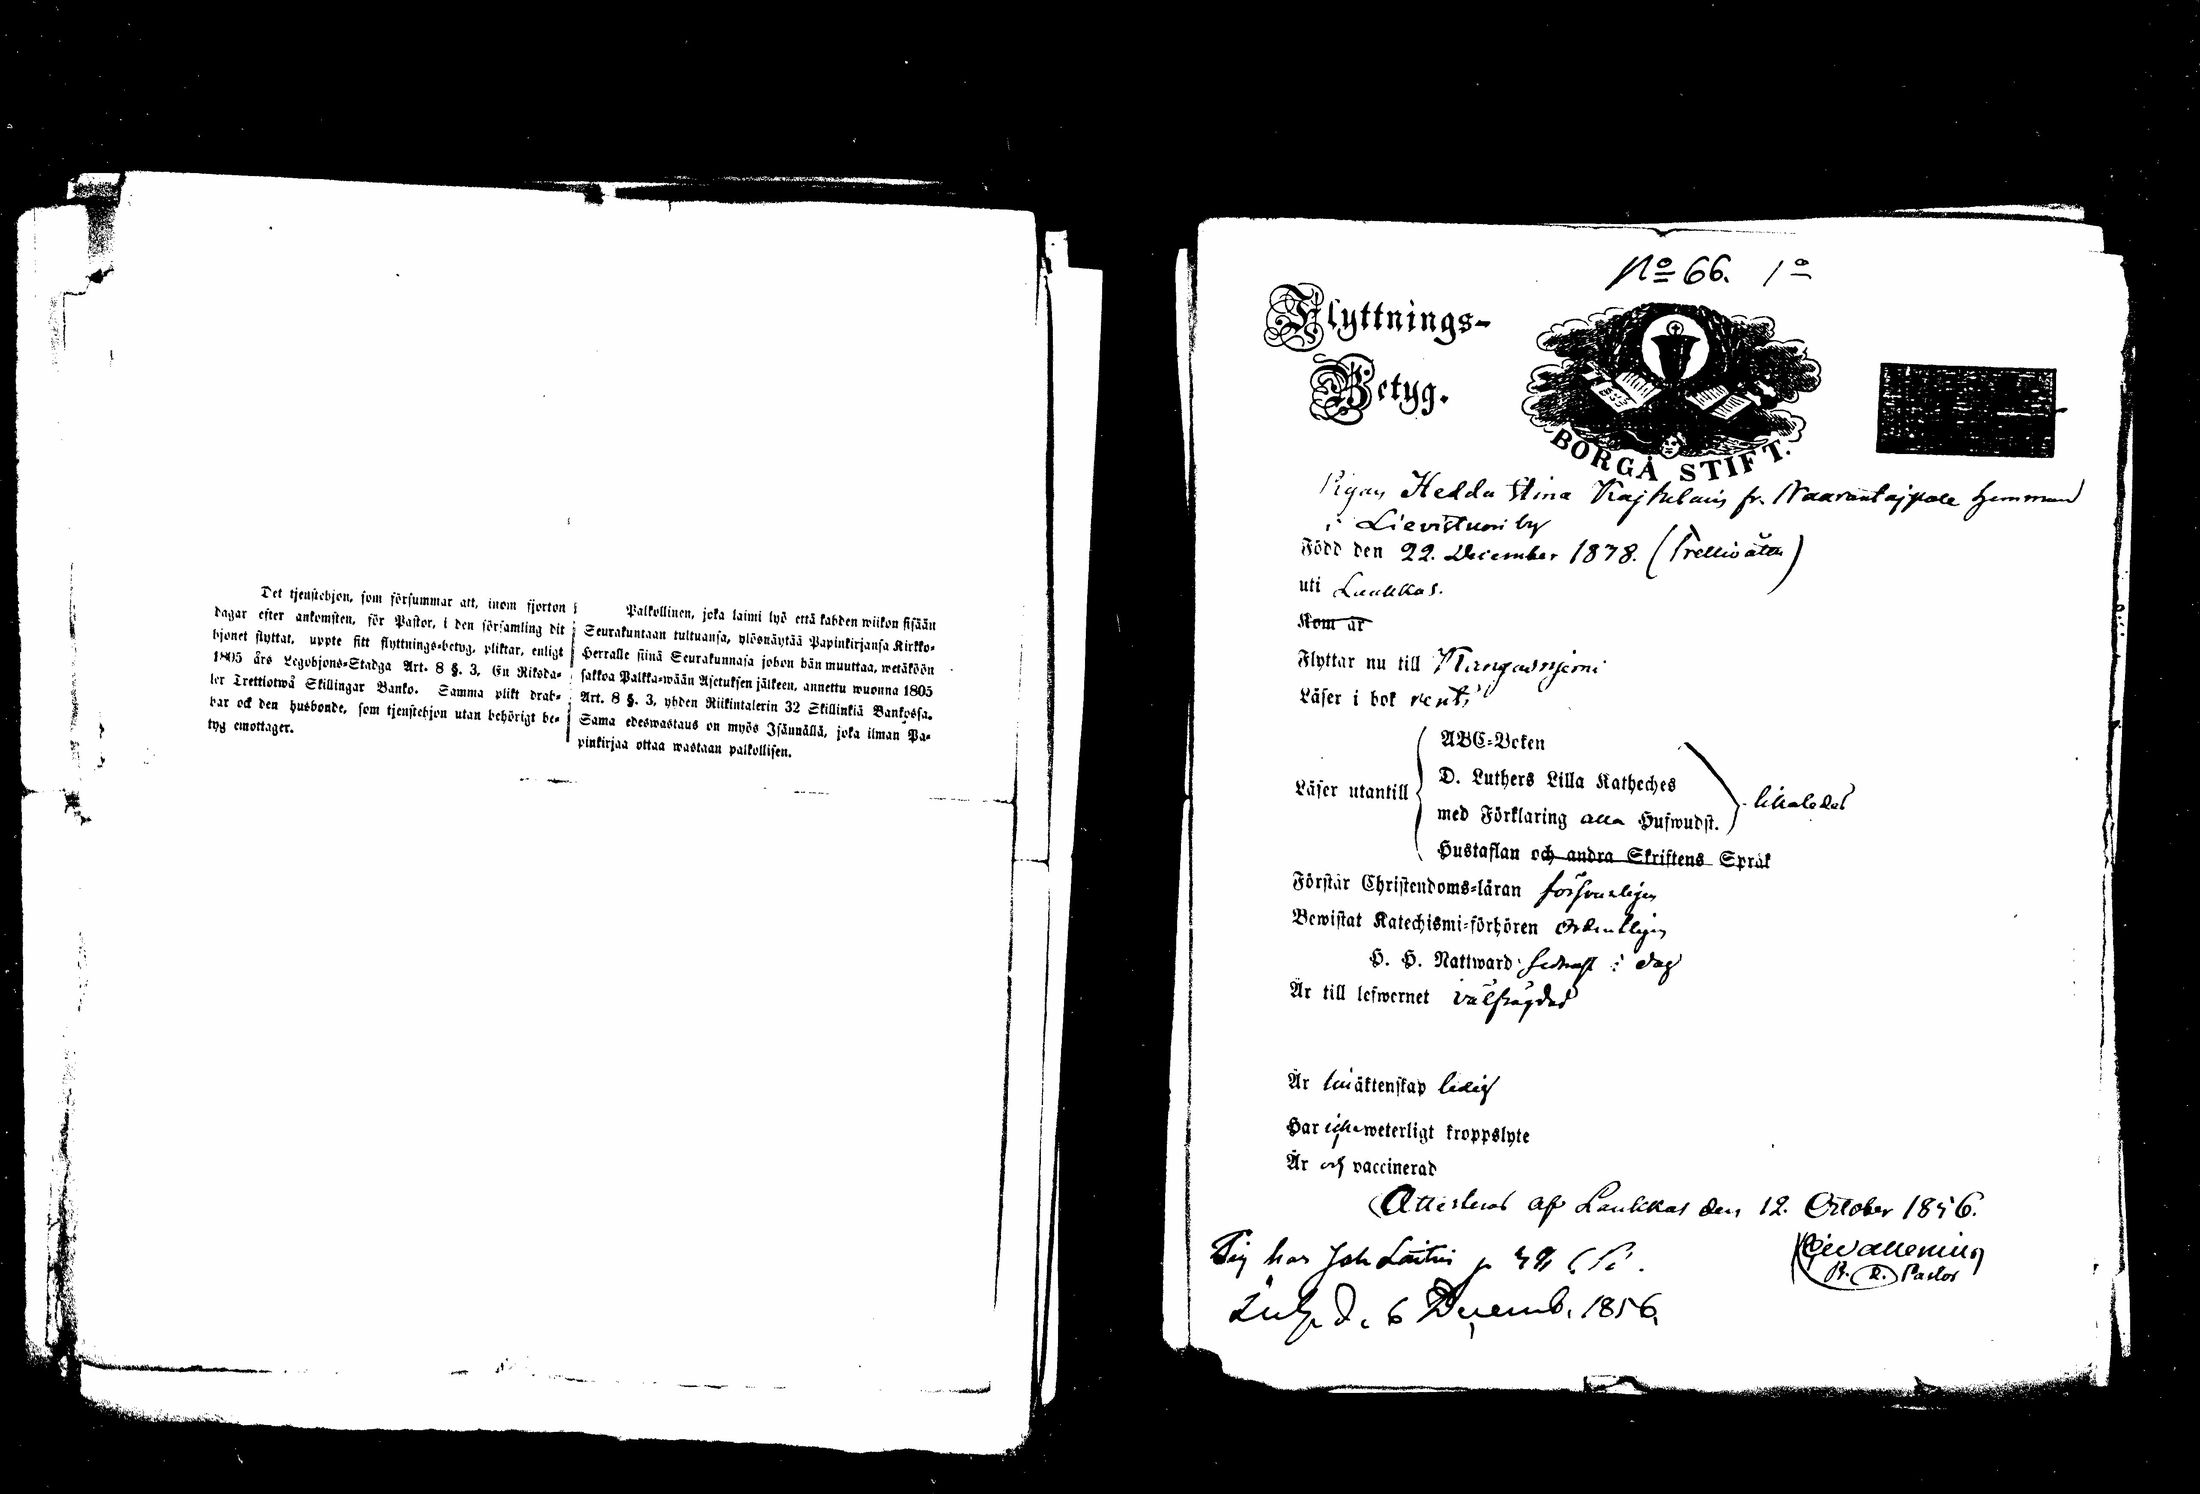 Det tjenstehjon, som försummar att, inom fjorton
dagar efter ankomsten, för Pastor, i den församling dit
hjonet flyttat, uppte sitt flyttnings-betyg, pliktar, enligt
1805 års Legohjons-Stadga Art. 8 §. 3, En Riksda-
ler Trettiotwå Skillingar Banko. Samma plikt drab-
bar ock den husbonde, som tjenstehjon utan behörigt be-
tyg emottager.
Palkollinen, joka laimi lyö että kahden wiikon sisään
Seurakuntaan tultuansa, ylösnäytää Papinkirjansa Kirkko-
Herralle siinä Seurakunnasa johon hän muuttaa, wetäköön
sakkoa Palkka-wään Asetuksen jälkeen, annettu wuonna 1805
Art. 8 §. 3, yhden Riikintalerin 32 Skillinkiä Bankossa.
Sama edeswastaus on myös Isännällä, joka ilman Pa-
pinkirjaa ottaa wastaan palkollisen.
No 66. 1o
Flyttnings-
Betyg.
BORGÅ STIFT.
Pigan Hedda Stina fr. Naarantajpale hemman
i Lievistuori by
Född den 22. December 1838. (Trettio åtta)
uti Laukkas.
Kom år
Flyttar nu till Kangasniemi
Läser i bok rent,
Läser utantill
ABC-Boken
D. Luthers Lilla Katheches
med Förklaring alla Hufwudst.
Hustaflan och andra Skriftens Språk
likaledes
Förstår Christendoms-läran försvarligen
Bewistat Katechismi-förhören ordentligen
H. H. Nattward sednast i dag
Är till lefwernet välfrägdad
Är till äktenskap ledig
Har icke weterligt kroppslyte
Är och vaccinerad
Attesteras af Laukkas den 12. October 1856.
Pastor
har Joh
d. 6 Decemb. 1856.